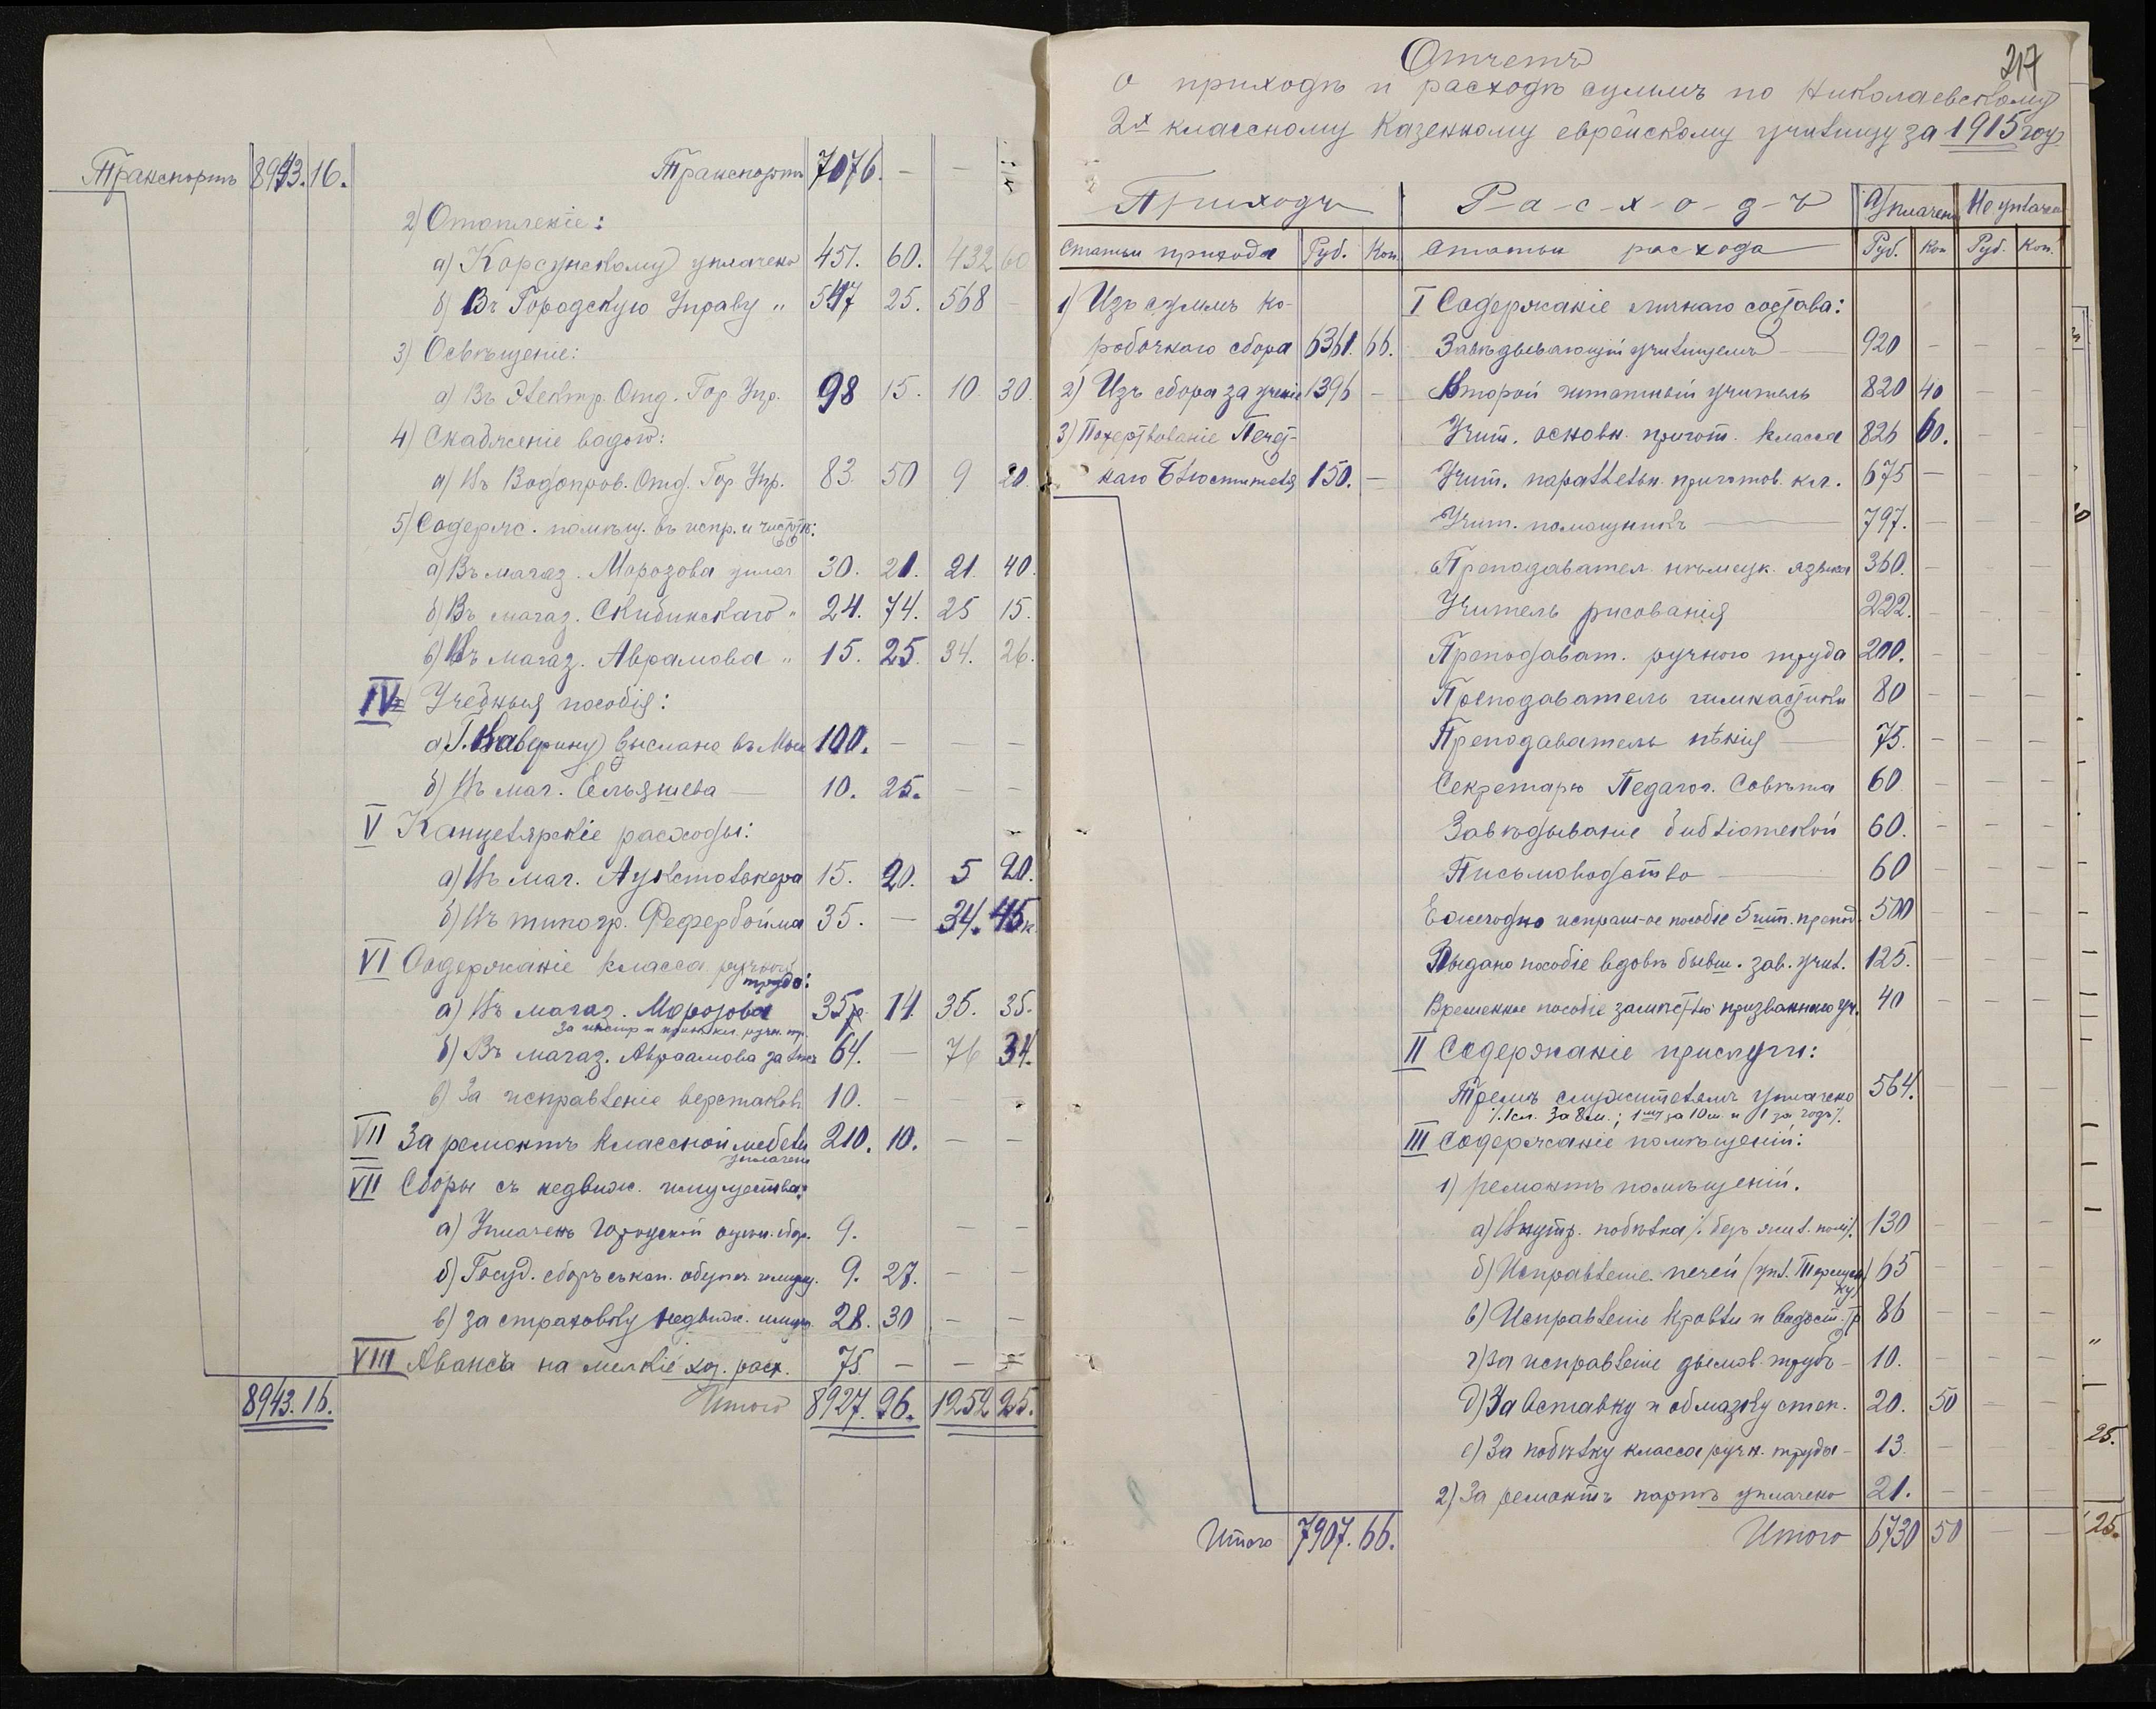 Транспортъ 8943. 16. Транспортъ 7076. — —
2) Отопленіе:
а) Корсунскому уплачено 451. 60. 432 60
б) Въ Городскую Управу " 547 25. 568 -
3) Освѣщеніе:
а) Въ Электр. Отд. Гор. Упр. 98 15. 10. 30.
4) Снабженіе водою:
а) Въ Водопров. Отд. Гор. Упр. 83. 50 9 20.
5) Содерж. помѣщ. въ испр. и чистотѣ:
а) Въ магаз. Морозова уплач 30. 21. 21. 40.
б) Въ магаз. Скибинскаго " 24. 74. 25 15.
в) Въ магаз. Аврамова " 15. 25. 34. 26.
IV Учебныя пособія:
а) Г. Каверину выслано въ 100. — — —
б) Въ маг. Ельяшева — 10. 25. — —
V Канцелярскіе расходы:
а) Въ маг. 15. 20. 5 20.
б) Въ типогр. Фефербойма 35. — 34. 45к
VI Содержаніе класса ручного
труда:
а) Въ магаз. Морозова 35р. 14. 35. 35.
б) Въ магаз. Авраамова за 64. — 76 34.
в) За исправленіе верстаковъ 10. —
VII За ремонтъ классной мебели 210. 10. — —
уплачено
VII Сборы съ недвиж. имущества:
а) Уплаченъ Городской оцѣн. сбор. 9. — —
б) Госуд. сборъ съ 9. 27. — —
в) За страховку недвиж. имущ. 28. 30 — —
VIII Авансъ на мелкіе хоз. расх. 75. — —
8943. 16. Итого 8927. 96. 1252 25.
217
Отчетъ
о приходѣ и расходѣ суммъ по Николаевскому
2х классному Казенному еврейскому училищу за 1915 годъ
Приходъ Р-а-с-х-о-д-ъ Уплачено Не уплачено
Статьи прихода Руб. Коп. Статьи расхода Руб. Коп Руб. Коп.
1) Изъ суммъ ко-
робочнаго сбора 6361. 66.
2) Изъ сбора за ученіе 1396 —
3) Пожертвованіе Почет-
наго Блюстителя 150. —
Итого 7907. 66.
I Содержаніе личнаго состава:
Завѣдывающій училищемъ — 920 — — —
Второй штатный учитель 820 40 — —
Учит. основн. пригот. класса 826 60. — —
Учит. параллельн. приготов. кл. 675 — — —
Учит. помощникъ — 797. — — —
Преподавател. нѣмецк. языка 360. — — —
Учитель рисованія 222. — — —
Преподават. ручного труда 200. — — —
Преподаватель гимнастики 80 — — —
Преподаватель пѣнія — 75. — — —
Секретарю Педагог. Совѣта 60. — — —
Завѣдываніе библіотекой 60. — — —
Письмоводство — 60 — — —
Ежегодно испраш-ое пособіе 5 шт. препод. 500 — — —
Выдано пособіе вдовѣ бывш. зав. учил. 125. — — —
Временное пособіе призваннаго уч. 40 — — —
II Содержаніе прислуги:
Тремъ служителямъ уплачено 564. — — —
/1 сл. за 8 м.; 1му за 10 м. и 1 за годъ/.
III Содержаніе помѣщеній:
1) ремонтъ помѣщеній.
а) Внутр. побѣлка /безъ жил. пом/. 130 — —
б) Исправленіе печей (упл. 65 — — —
в) Исправленіе кровли и водост. тр 86 — — —
г) За исправленіе дымов. трубъ — 10. — — —
д) За вставку и обмазку стек. 20. 50 — —
е) За побѣлку класса ручн. труда — 13. — —
2) За ремонтъ партъ уплачено 21. — — —
Итого 6730 50 — —
25.
25.